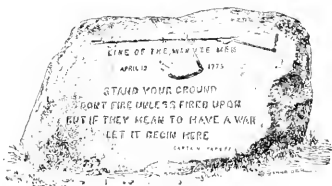 LINE OF THE MINUTE MEN
APRIL 19 1775
STAND YOUR GROUND
DON'T FIRE UNLESS FIRED UPON
BUT IF THEY MEAN TO HAVE A WAR
LET IT BEGIN HERE
CAPT'N PARKER